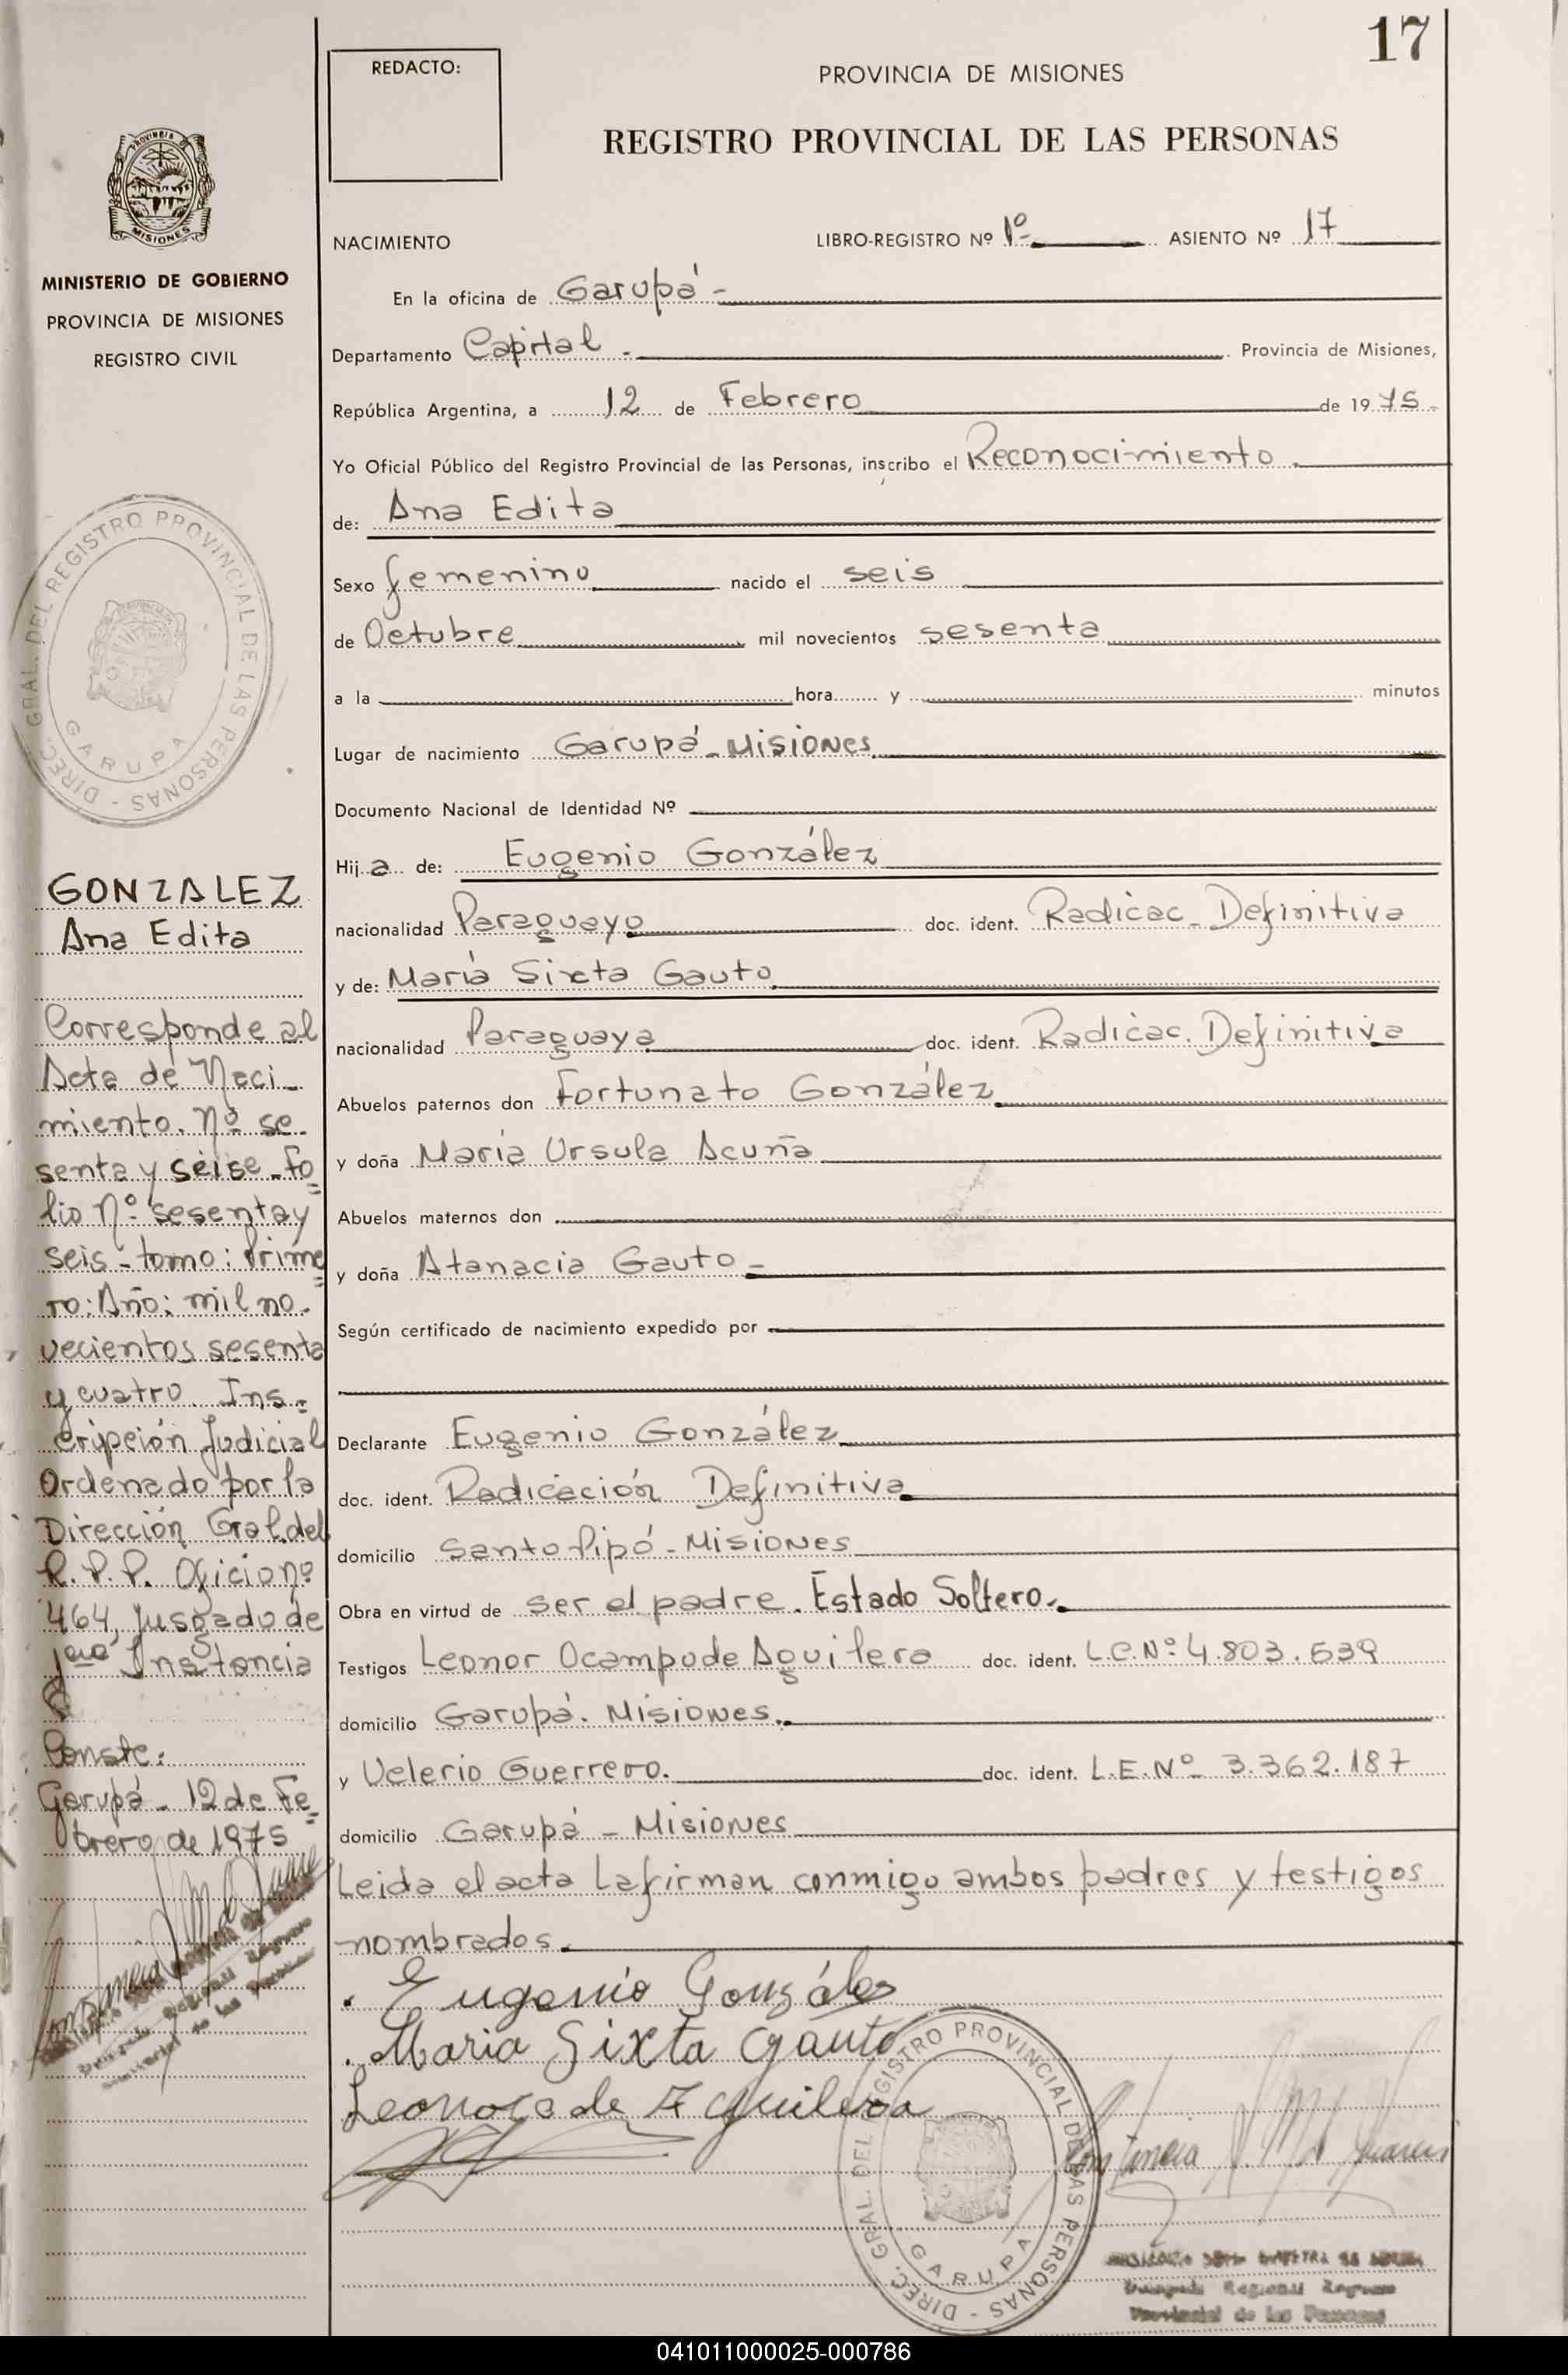 17
REDACTO:
PROVINCIA DE MISIONES
REGISTRO PROVINCIAL DE LAS PERSONAS
PROVINCIA
MISIONES
MINISTERIO DE GOBIERNO
PROVINCIA DE MISIONES
REGISTRO CIVIL
NACIMIENTO LIBRO-REGISTRO Nº 1º- ASIENTO Nº 17
En la oficina de Garupá -
Departamento Capital - Provincia de Misiones,
República Argentina, a 12 de Febrero de 1975-
Yo Oficial Público del Registro Provincial de las Personas, inscribo el Reconocimiento
de: Ana Edita
Sexo femenino nacido el seis
de Octubre mil novecientos sesenta
a la hora y minutos
Lugar de nacimiento Garupá - Misiones
Documento Nacional de Identidad Nº
Hija de: Eugenio González
nacionalidad Paraguayo doc. ident. Radicac- Definitiva
y de: María Sixta Gauto
nacionalidad Paraguaya doc. ident. Radicac. Definitiva
Abuelos paternos don Fortunato González
y doña María Ursula Acuña
Abuelos maternos don
y doña Atanacia Gauto -
Según certificado de nacimiento expedido por
Declarante Eugenio González
doc. ident. Radicación Definitiva
domicilio Santo Pipó - Misiones
Obra en virtud de ser el padre. Estado Soltero.
Testigos Leonor Ocampo de Aguilera doc. ident. L.C.Nº 4.803.539
domicilio Garupá. Misiones.
y Velerio Guerrero. doc. ident. L.E.Nº 3.362.187
domicilio Garupá - Misiones
Leida el acta La firman conmigo ambos padres y testigos
nombrados.
Eugenio González
Maria Sixta Gauto
de Aguilera
DIREC. GRAL. DEL REGISTRO PROVINCIAL DE LAS PERSONAS -
GARUPA
Provincial de las Personas
DIREC. GRAL. DEL REGISTRO PROVINCIAL DE LAS PERSONAS -
GARUPA
GONZALEZ
Ana Edita
Corresponde al
Acta de Naci-
miento. Nº se-
senta y seise - Fo=
lio Nº sesenta y
seis - tomo: Prime=
ro: Año: mil no-
vecientos sesenta
y cuatro. Ins=
cripción Judicial
Ordenado por la
Dirección Gral. del
R.P.P. Oficio nº
464, Jusgado de
1era Instancia
Conste:
Garupá - 12 de Fe=
brero de 1975
041011000025-000786